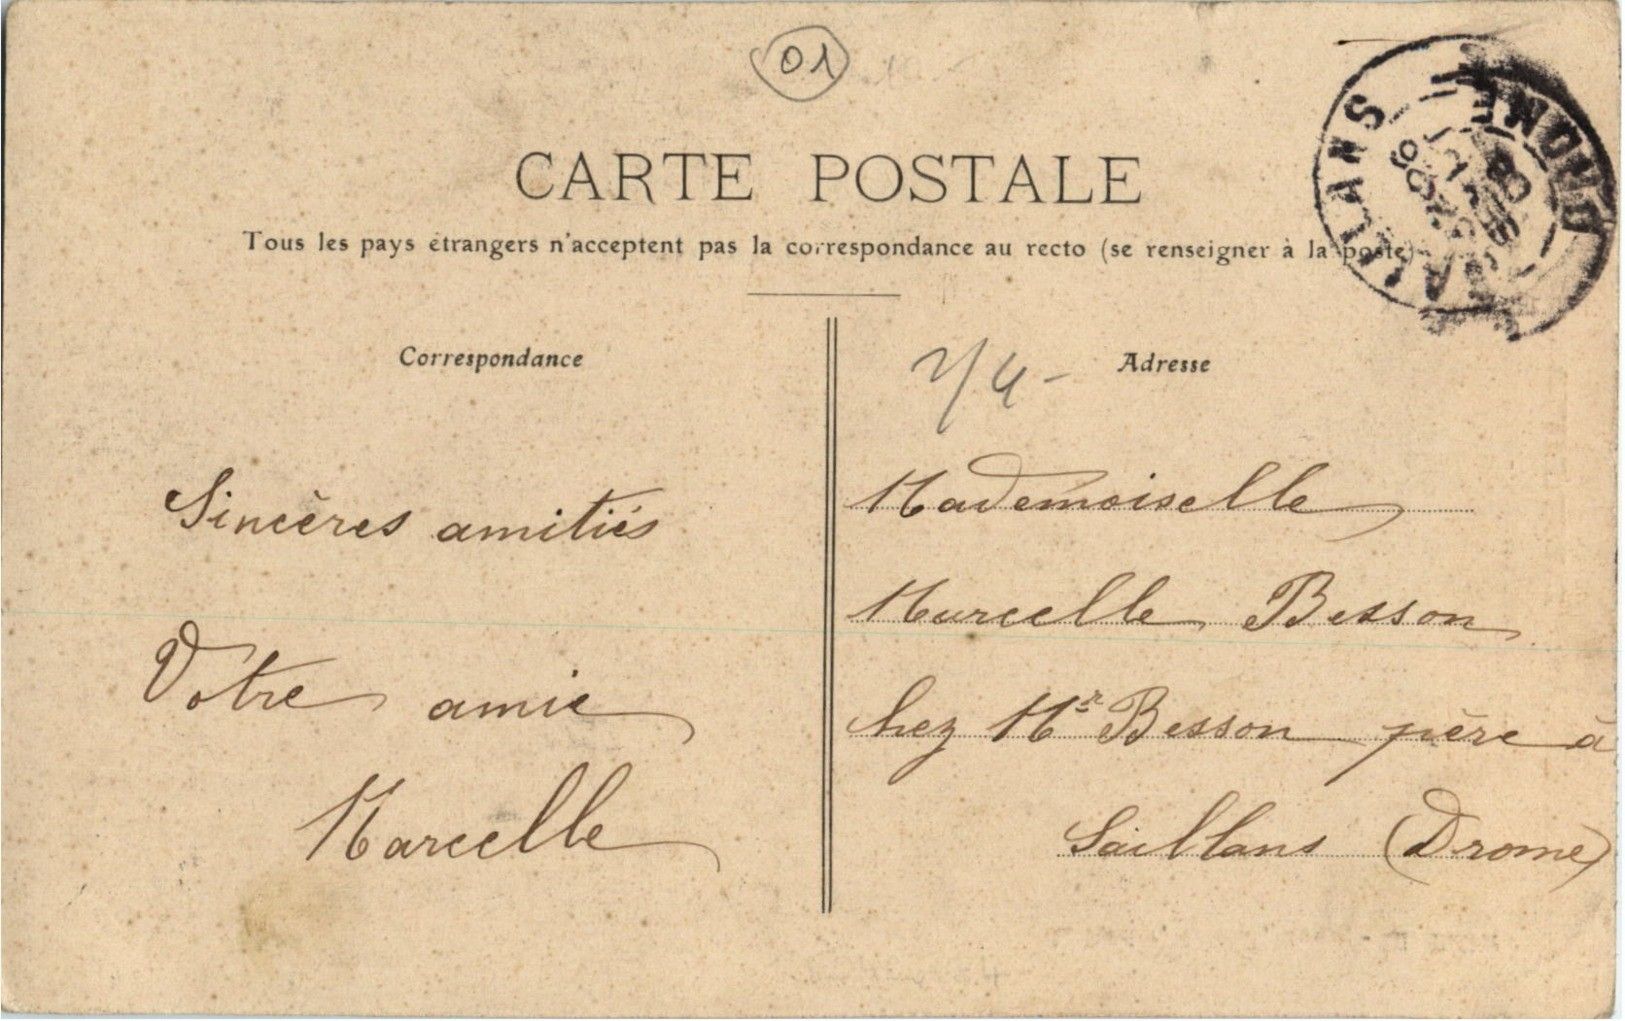 01
CARTE POSTALE
Tous les pays étrangers n'acceptent pas la correspondance au recto (se renseigner à la poste)
Correspondance
Sincères amitiés
Votre amie
Marcelle
Adresse
Mademoiselle
Marcelle Besson
chez Mr Besson père à
Saillans (Drome)
SAILLANS
DROME